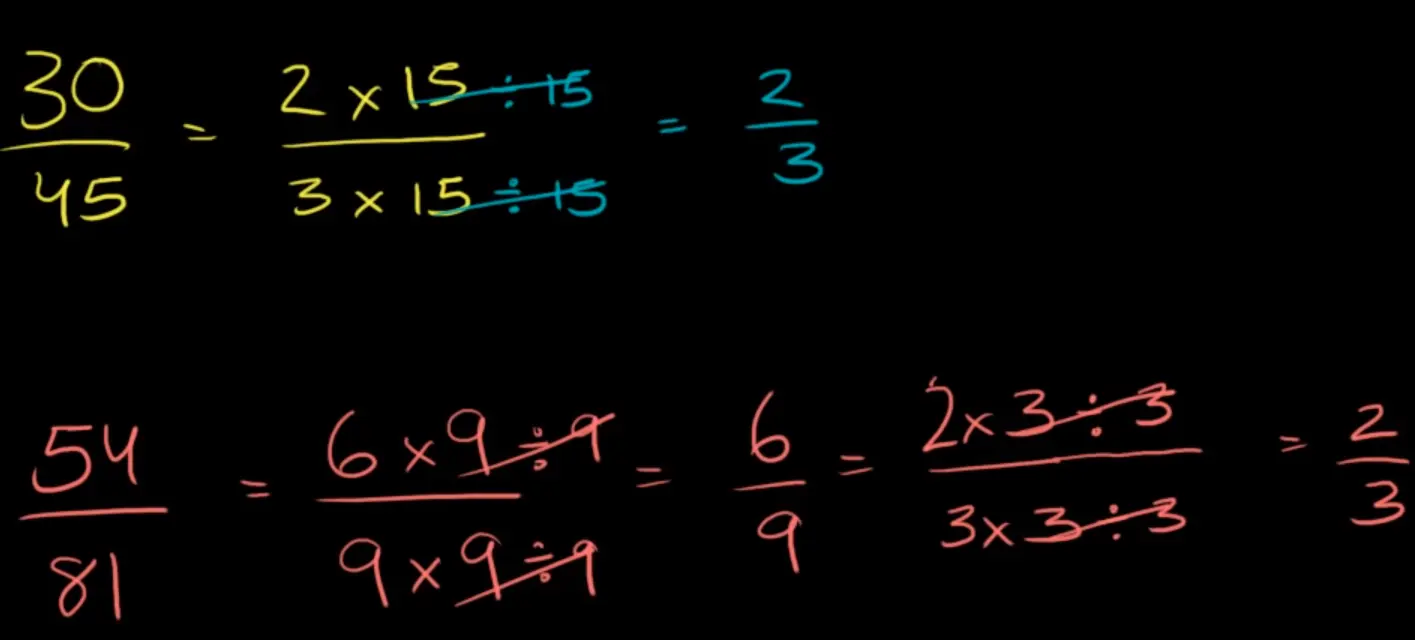 30/45 = (2 × 15 ÷ 15)/(3 × 15 ÷ 15) = 2/3
54/81 = (6 × 9 ÷ 9)/(9 × 9 ÷ 9) = 6/9 = (2 × 3 ÷ 3)/(3 × 3 ÷ 3) = 2/3